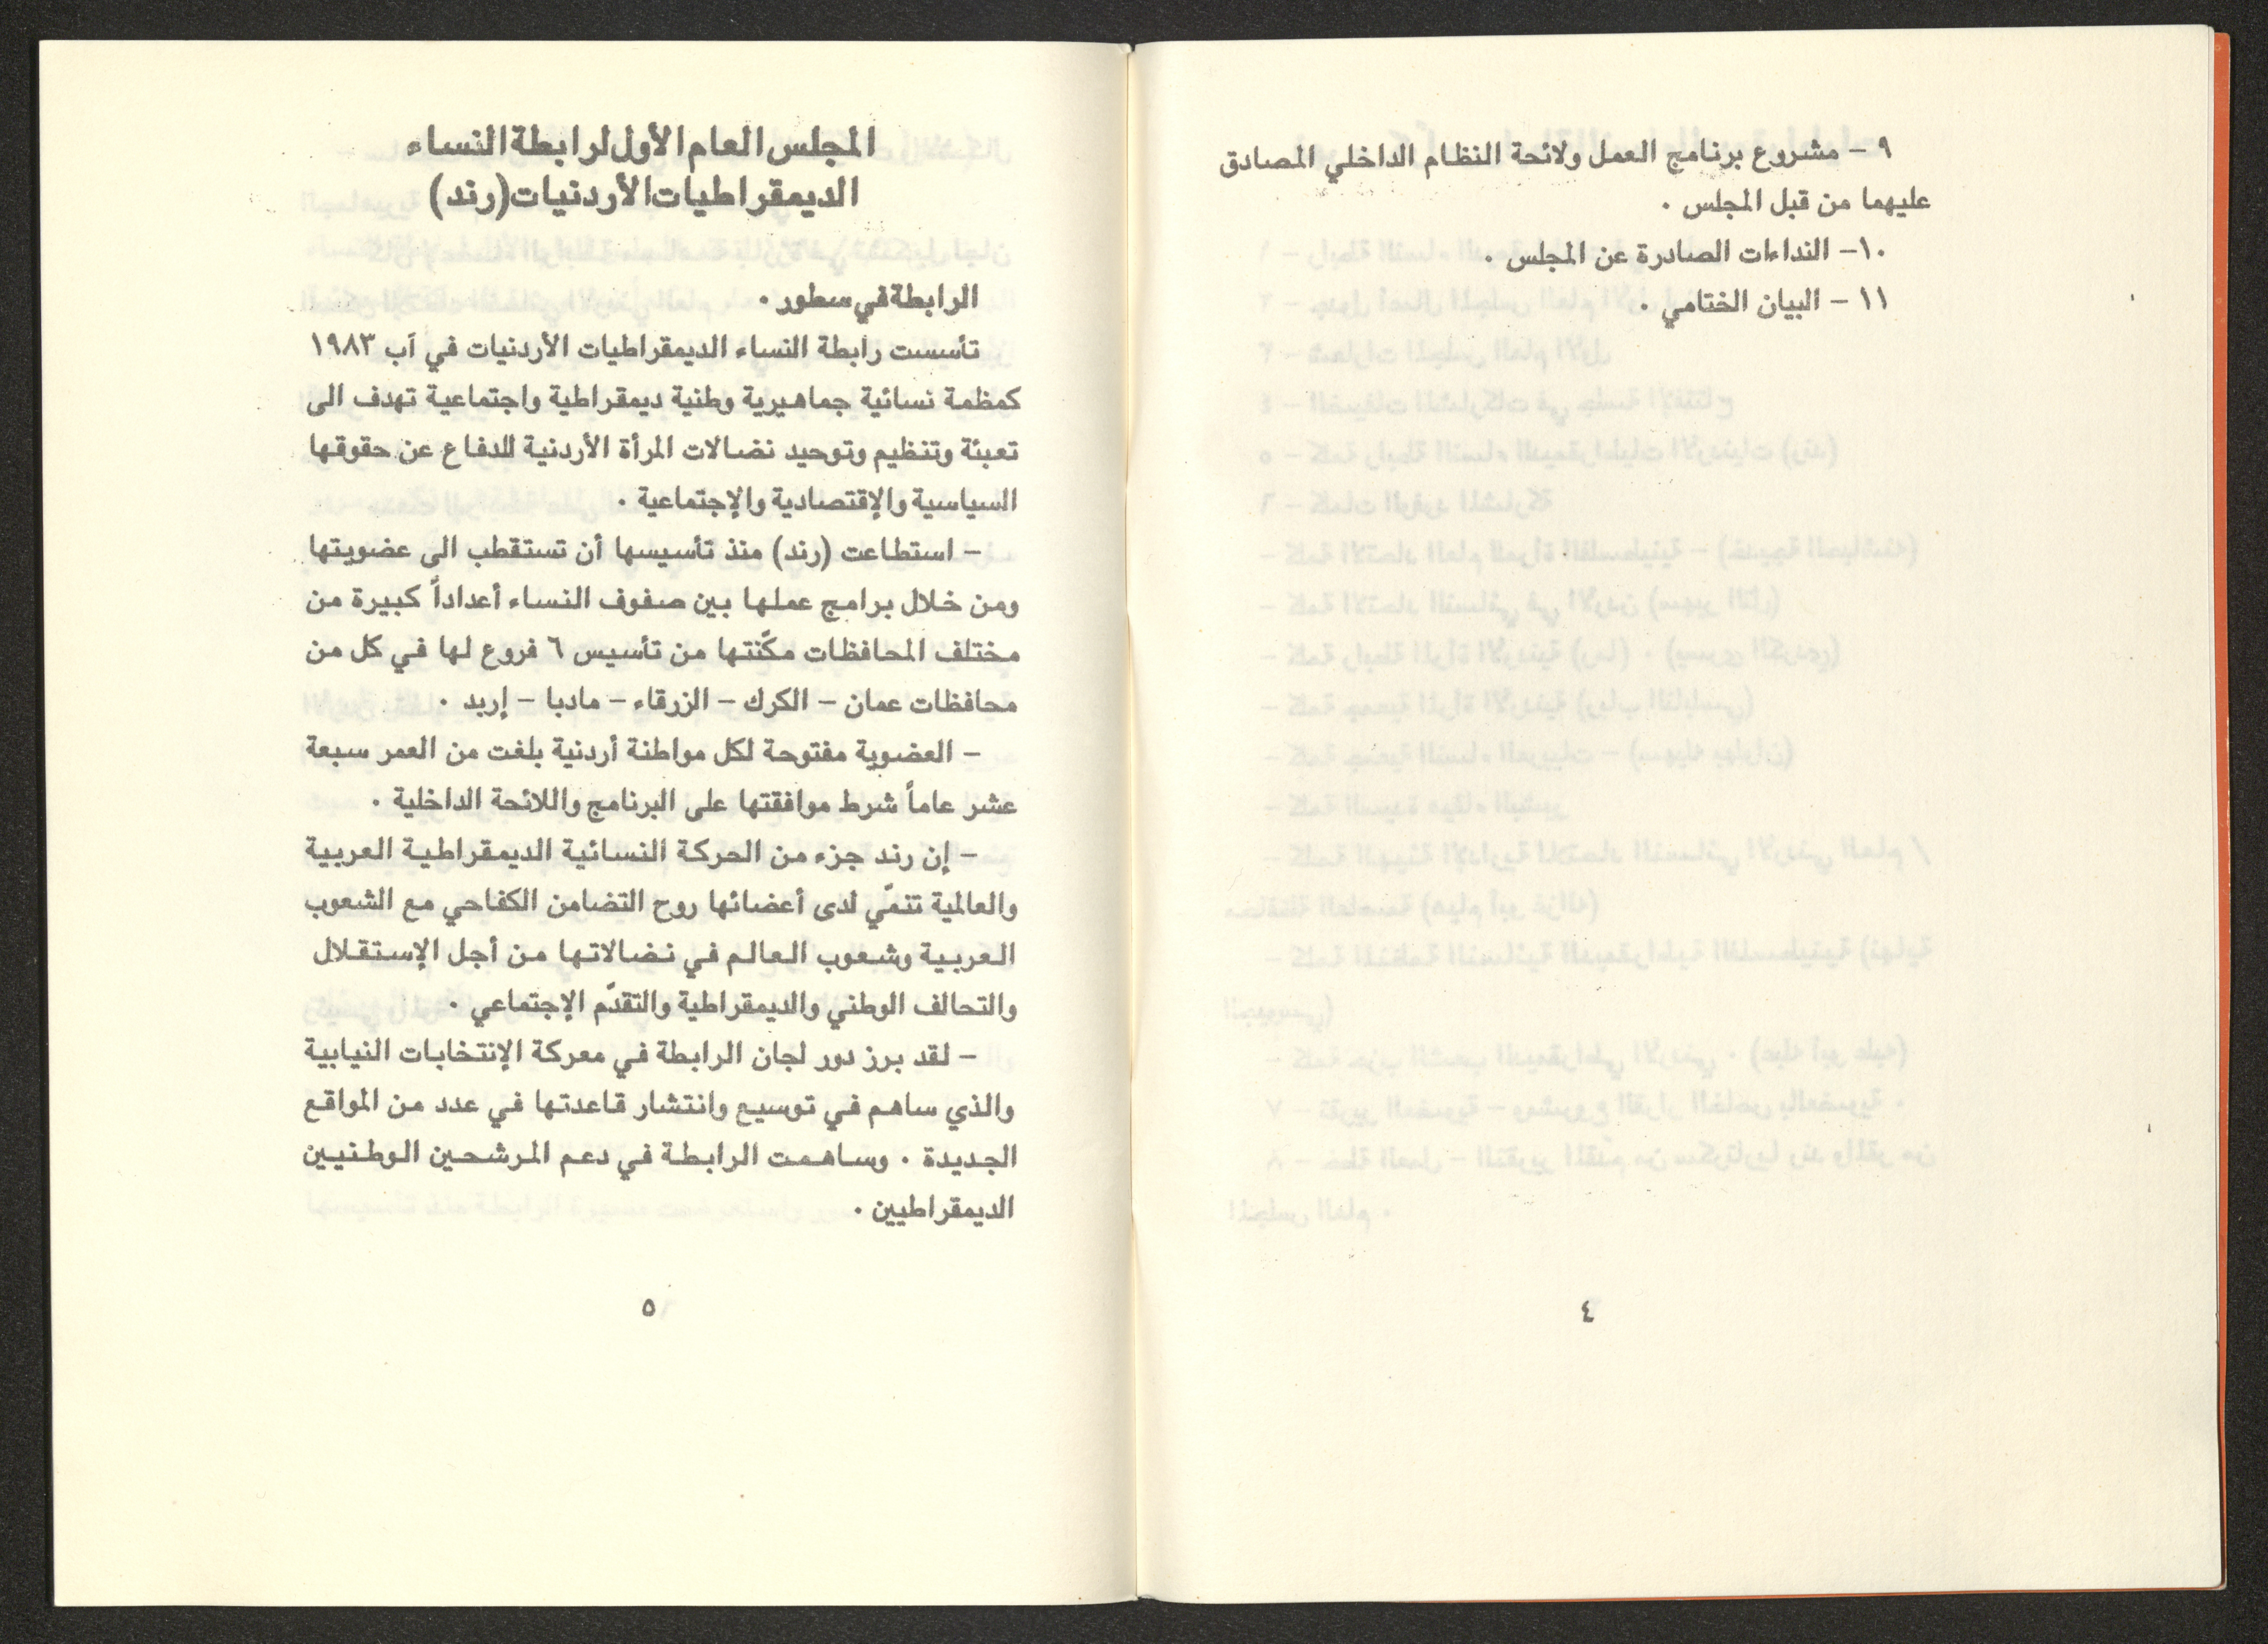 ٩ – مشروع برنامج العمل ولائحة النظام الداخلي المصادق
عليهما من قبل المجلس ٠
١٠– النداءات الصادرة عن المجلس ٠
١١ – البيان الختامي ٠
٤
المجلس العام الأول لرابطة النساء
الديمقراطيات الأردنيات (رند)
الرابطة في سطور ٠
تأسست رابطة النساء الديمقراطيات الأردنيات في آب ١٩٨٣
كمظمة نسائية جماهيرية وطنية ديمقراطية واجتماعية تهدف الى
تعبئة وتنظيم وتوحيد نضالات المرأة الأردنية للدفاع عن حقوقها
السياسية والإقتصادية والإجتماعية ٠
– استطاعت (رند) منذ تأسيسها أن تستقطب الى عضويتها
ومن خلال برامج عملها بين صفوف النساء أعداداً كبيرة من
مختلف المحافظات مكّنتها من تأسيس ٦ فروع لها في كل من
محافظات عمان – الكرك – الزرقاء – مادبا – إربد ٠
– العضوية مفتوحة لكل مواطنة أردنية بلغت من العمر سبعة
عشر عاماً شرط موافقتها على البرنامج واللائحة الداخلية ٠
– إن رند جزء من الحركة النسائية الديمقراطية العربية
والعالمية تنمّي لدى أعضائها روح التضامن الكفاحي مع الشعوب
العربية وشعوب العالم في نضالاتها من أجل الإستقلال
والتحالف الوطني والديمقراطية والتقدّم الإجتماعي ٠
– لقد برز دور لجان الرابطة في معركة الإنتخابات النيابية
والذي ساهم في توسيع وانتشار قاعدتها في عدد من المواقع
الجديدة ٠ وساهمت الرابطة في دعم المرشحين الوطنيين
الديمقراطيين ٠
٥